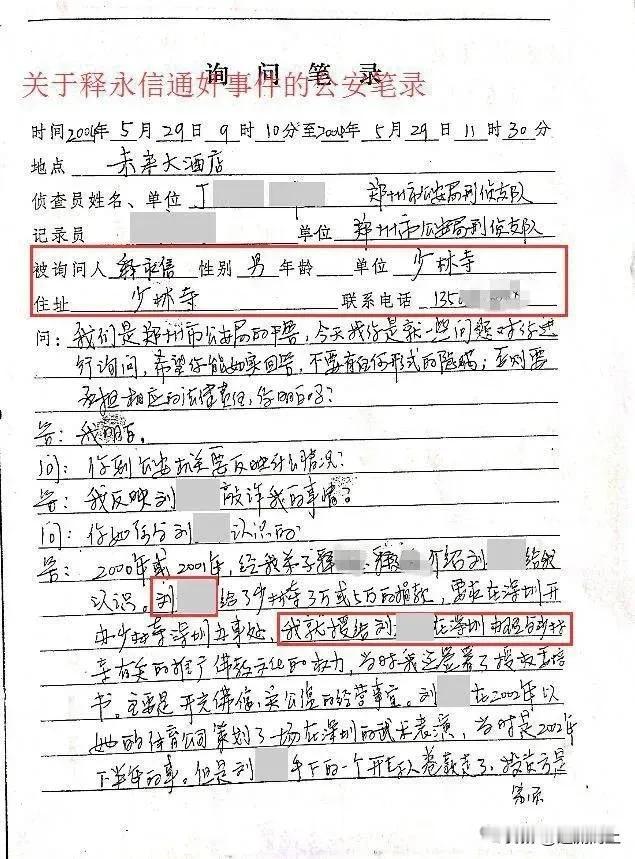 询问笔录
关于释永信通奸事件的公安笔录
时间2004年5月29日9时10分至2004年5月29日11时30分
地点 未来大酒店
侦查员姓名、单位 丁 郑州市公安局刑侦支队
记录员 单位 郑州市公安局刑侦支队
被询问人 释永信 性别 男 年龄 单位 少林寺
住址 少林寺 联系电话 135
问:我们是郑州市公安局的干警,今天找你是就一些问题对你进
行询问,希望你能如实回答,不要有任何形式的隐瞒;否则要
承担相应的法律责任,你明白吗?
答:我明白。
问:你到公安机关要反映什么情况?
答:我反映刘 敲诈我的事情?
问:你如何与刘 认识的
答:2000年或2001年,经我弟子释 释 介绍刘 给我
认识。刘 给了少林寺3万或5万的捐款,要在深圳开
办少林寺深圳办事处,我就授给刘 在深圳办理与少林
寺有关的推广佛教文化的权力,当时我还签署了授权委培
书。主要是开光佛信,卖公偿的经营事宜。刘 在2002年以
她的体育公司策划了一场在深圳的武术表演,当时是2002年
下半年的事。但是刘 手下的一个开支款卷款走了,投资方是